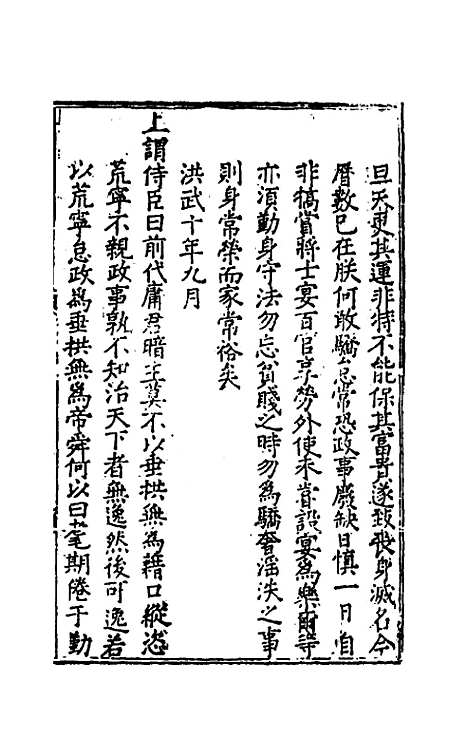 旦天更其運非特不能保其富貴遂致喪身滅名今
曆數已在朕何敢驕怠常恐政事廢缺日慎一日自
非犒賞將士宴百官享勞外使未嘗設宴為樂爾等
亦須勤身守法勿忘貧賤之時勿為驕奢淫泆之事
則身常榮而家常裕矣
洪武十年九月
上謂侍臣曰前代庸君暗主莫不以垂拱無為藉口縱恣
荒寧不親政事孰不知治天下者無逸然後可逸若
以荒寧怠政為垂拱無為帝舜何以曰耄期倦于勤